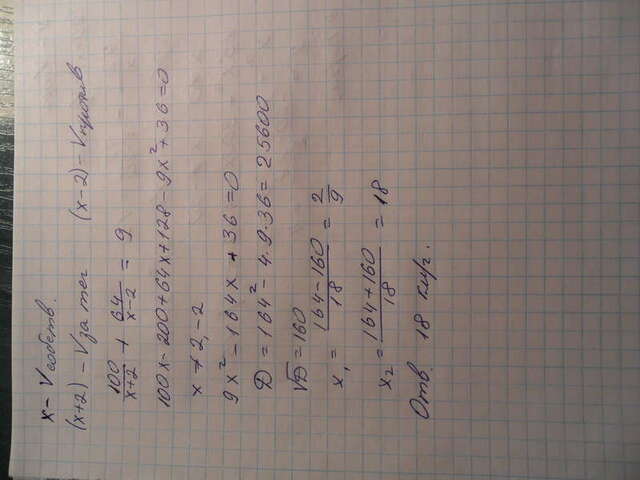 x – Vсобств.
(x+2) – V за теч (x–2) – Vпротив
100/(x+2) + 64/(x–2) = 9
100x – 200 + 64x + 128 – 9x² + 36 = 0
x ≠ 2, –2
9x² – 164x + 36 = 0
D = 164² – 4·9·36 = 25600
√D = 160
x₁ = (164–160)/18 = 2/9
x₂ = (164+160)/18 = 18
Отв. 18 км/г.